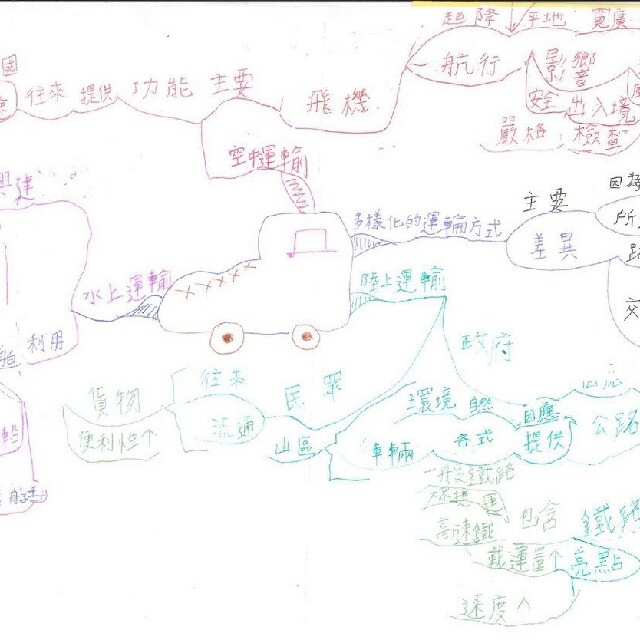 起降 平地 寬廣
航行
影響
安全 出入境
嚴格 檢查
飛機
主要
功能
提供
往來
國
空中運輸
建
多樣化的運輸方式
主要
差異
所
交
水上運輸
利用
船
陸上運輸
政府
環境
因應
提供
公路
各式
車輛
山區
民眾
往來
流通
貨物
便利性个
包含
鐵路
高速鐵
載運量个
亮點
速度